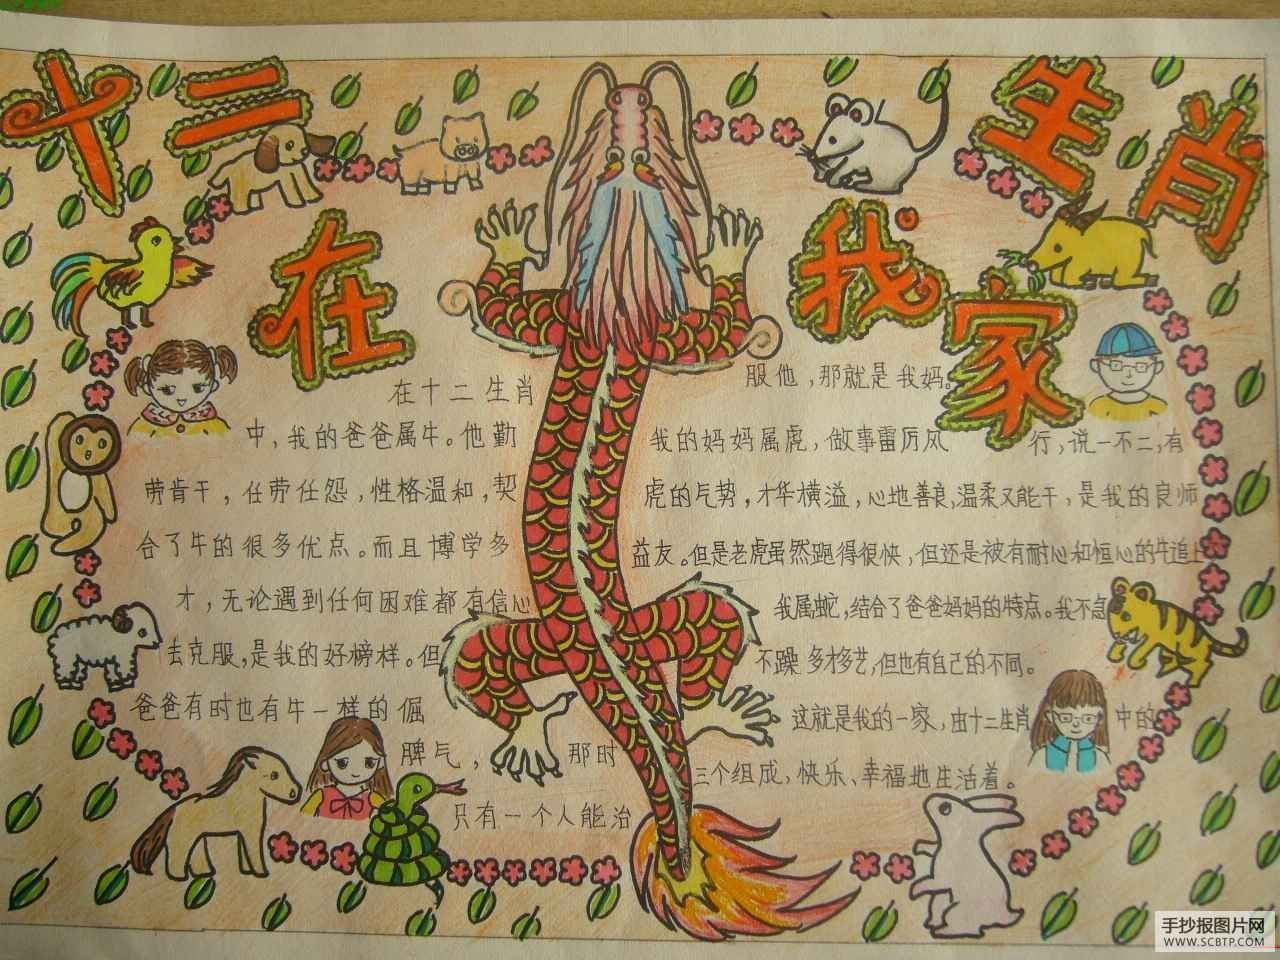 十二生肖
在我家
在十二生肖
中，我的爸爸属牛。他勤
劳肯干，任劳任怨，性格温和，契
合了牛的很多优点。而且博学多
才，无论遇到任何困难都有信心
去克服，是我的好榜样。但
爸爸有时也有牛一样的倔
脾气，那时
只有一个人能治
服他，那就是我妈。
我的妈妈属虎，做事雷厉风行，说一不二，有
虎的气势，才华横溢，心地善良，温柔又能干，是我的良师
益友。但是老虎虽然跑得很快，但还是被有耐心和恒心的牛追上
我属蛇，结合了爸爸妈妈的特点。我不急
不躁多才多艺，但也有自己的不同。
这就是我的一家，由十二生肖中的
三个组成，快乐、幸福地生活着。
手抄报图片网
WWW.SCBTP.COM